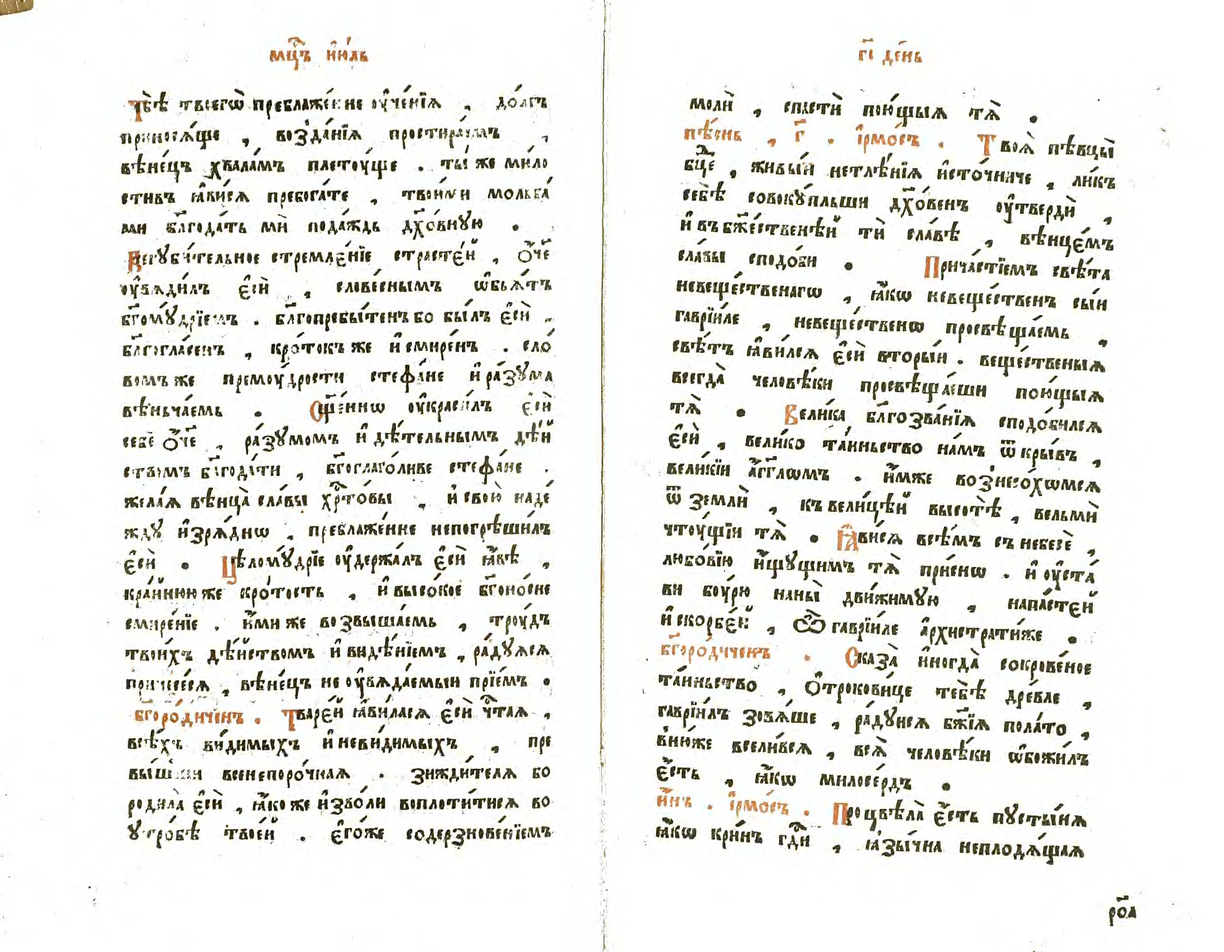 мцⷭ҇ъ і҆ю́ль
Тебѐ твоегѡ̀ преблаже́нне ᲂу҆че́нїѧ , до́лгъ
приносѧ́ще , возда́нїѧ простира́емъ ,
вѣне́цъ хвала́мъ плетꙋ́ще . ты́ же мило
стивъ ꙗ҆ви́сѧ пребога́те , твои́ми мольба́
ми бл҃года́ть мѝ пода́ждь дх҃о́внꙋю .
Всегꙋби́тельное стремле́нїе страсте́й , ѻ҆́ч҃е
ᲂу҆вѧди́лъ є҆сѝ , слове́снымъ ѡ҆б̾ѧ́тъ
бг҃омꙋ́дрїемъ . бл҃гопребы́тенъ бо бы́лъ є҆сѝ ,
бл҃гогла́сенъ , кро́токъ же и҆ смире́нъ . сло́
вомъ же премꙋ́дрости стефа́не и҆ ра́зꙋма
вѣньча́емь . Сщ҃е́ннѡ ᲂу҆краси́лъ є҆сѝ
себѐ ѻ҆́ч҃е , ра́зꙋмомъ и҆ дѣ́тельнымъ дѣ́й
ствомъ бл҃года́ти , бг҃оглаго́ливе стефа́не .
жела́ѧ вѣнца̀ сла́вы хрⷭ҇то́вы , и҆ свою̀ наде́
ждꙋ и҆зрѧ́днѡ , преблаже́нне непогрѣши́лъ
є҆сѝ . Цѣломꙋ́дрїе ᲂу҆держа́лъ є҆сѝ ꙗ҆́вѣ ,
кра́йнюю же кро́тость , и҆ высо́кое бг҃оно́сне
смире́нїе . и҆́ми же возвыша́емь , трꙋ́дъ
твои́хъ дѣ́йствомъ и҆ видѣ́нїемъ , ра́дꙋѧсѧ
причте́сѧ , вѣне́цъ не ᲂу҆вѧда́емыи прїе́мъ .
бг҃оро́диченъ . Тваре́й ꙗ҆ви́ласѧ є҆сѝ чⷭ҇таѧ ,
всѣ́хъ ви́димыхъ и҆ неви́димыхъ , пре
вы́шши всенепоро́чнаѧ . зижди́телѧ бо
родила̀ є҆сѝ , ꙗ҆́коже и҆зво́ли воплоти́тисѧ во
ᲂу҆тро́бѣ твое́й . є҆го́же содерзнове́нїемъ
г҃і де́нь
молѝ , спастѝ пою́щыѧ тѧ̀ .
пѣ́снь , г҃ . і҆рмо́съ . Твоѧ̀ пѣвцы̀
бцⷣе , живы́й нетлѣ́нїѧ и҆сто́чниче , ли́къ
себѣ̀ совокꙋ́пльши дх҃о́венъ ᲂу҆твердѝ ,
и҆ въ бж҃е́ственнѣй тѝ сла́вѣ , вѣнце́мъ
сла́вы сподо́би . Прича́стїемъ свѣ́та
невеще́ственагѡ , ꙗ҆́кѡ невеще́ственъ сы́и
гаврїи́ле , невеще́ственѡ просвѣща́емь ,
свѣ́тъ ꙗ҆ви́лсѧ є҆сѝ вторы́й . веще́ственыѧ
всегда̀ человѣ́ки просвѣща́еши пою́щыѧ
тѧ̀ . Вели́ка бл҃гозва́нїѧ сподо́билсѧ
є҆сѝ , вели́ко та́иньство на́мъ ѿкры́въ ,
вели́кїи а҆́гг҃лѡмъ . и҆́мже вознесо́хомсѧ
ѿ землѝ , къ вели́цѣй высотѣ̀ , вельмѝ
чтꙋ́щїи тѧ̀ . Ꙗ҆ви́сѧ всѣ́мъ съ небесѐ ,
любо́вїю и҆́щꙋщимъ тѧ̀ при́снѡ . и҆ ᲂу҆ста́
ви бꙋ́рю на ны̀ дви́жимꙋю , напа́стей
и҆ ско́рбей , ѽ гаврїи́ле а҆рхистрати́же .
бг҃оро́диченъ . Сказа̀ и҆ногда̀ сокрове́ное
та́иньство , ѻ҆трокови́це тебѣ̀ дре́вле ,
гаврїи́лъ зовѧ́ше , ра́дꙋисѧ бж҃їѧ пола́то ,
в̾ню́же всели́всѧ , всѧ̀ человѣ́ки ѡ҆божи́лъ
є҆́сть , ꙗ҆́кѡ милосе́рдъ .
и҆́нъ . і҆рмо́съ . Процвѣла̀ є҆́сть пꙋсты́нѧ
ꙗ҆́кѡ кри́нъ гдⷭ҇и , ꙗ҆зы́чна неплодѧ́щаѧ
ро҃а